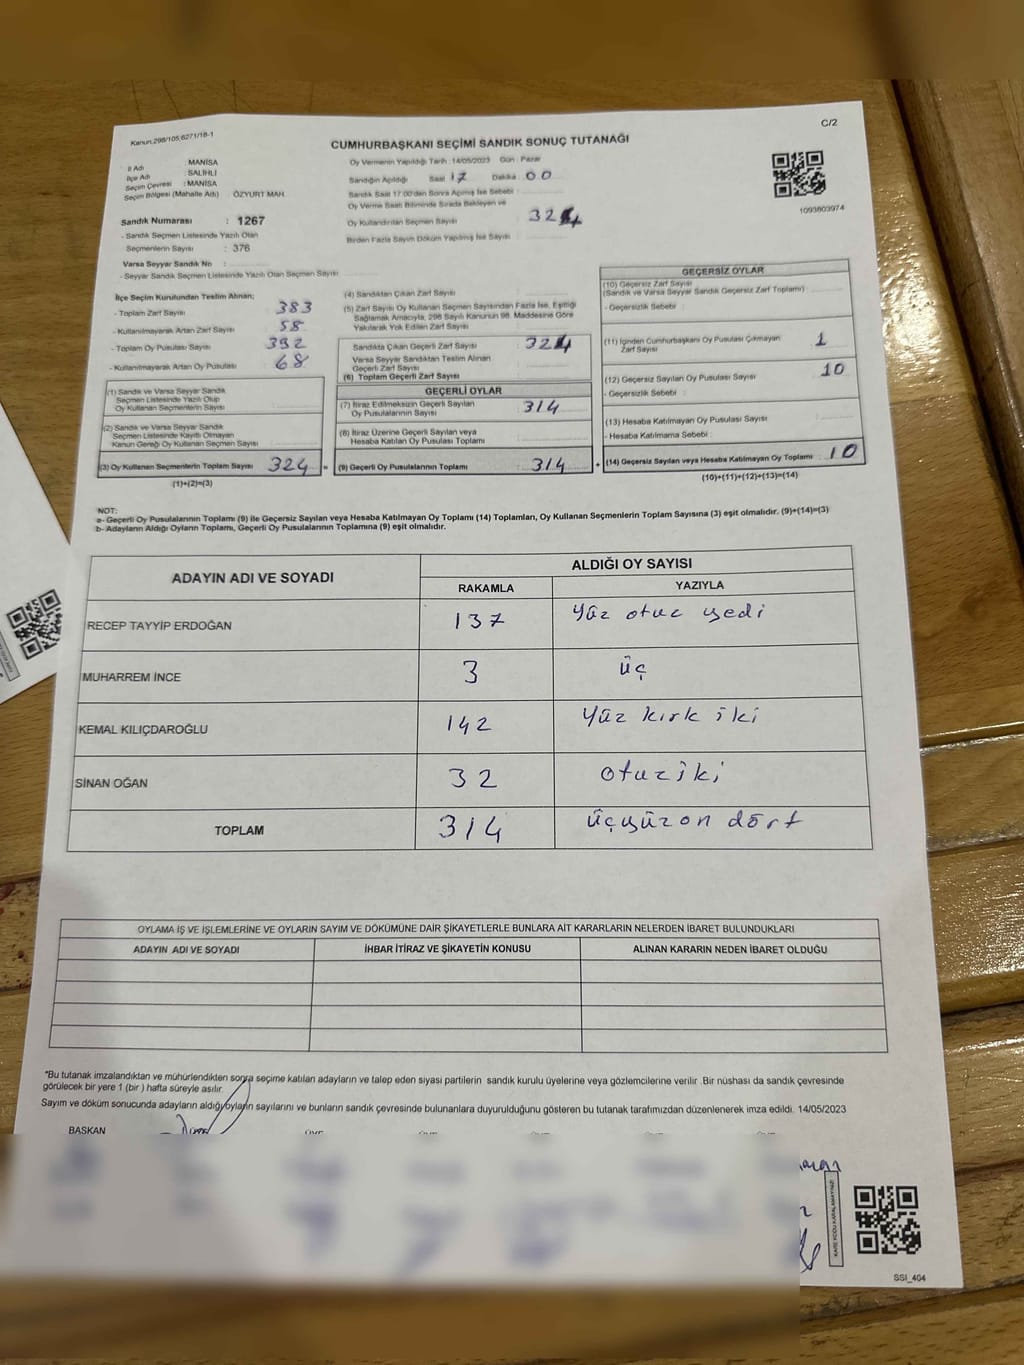 Kanun.298/105;6271/18-1
C/2
CUMHURBAŞKANI SEÇİMİ SANDIK SONUÇ TUTANAĞI
İl Adı : MANİSA
İlçe Adı : SALİHLİ
Seçim Çevresi : MANİSA
Seçim Bölgesi (Mahalle Adı) ÖZYURT MAH.
Sandık Numarası : 1267
- Sandık Seçmen Listesinde Yazılı Olan
Seçmenlerin Sayısı : 376
Varsa Seyyar Sandık No :
- Seyyar Sandık Seçmen Listesinde Yazılı Olan Seçmen Sayısı
Oy Vermenin Yapıldığı Tarih : 14/05/2023 Gün : Pazar
Sandığın Açıldığı Saat 17 Dakika : 00
Sandık Saat 17.00'den Sonra Açılmış İse Sebebi :
Oy Verme Saati Bitiminde Sırada Bekleyen ve
Oy Kullandırılan Seçmen Sayısı 324
Birden Fazla Sayım Döküm Yapılmış İse Sayısı :
1093803974
İlçe Seçim Kurulundan Teslim Alınan;
- Toplam Zarf Sayısı : 383
- Kullanılmayarak Artan Zarf Sayısı : 58
- Toplam Oy Pusulası Sayısı : 392
- Kullanılmayarak Artan Oy Pusulası : 68
(1) Sandık ve Varsa Seyyar Sandık
Seçmen Listesinde Yazılı Olup
Oy Kullanan Seçmenlerin Sayısı :
(2) Sandık ve Varsa Seyyar Sandık
Seçmen Listesinde Kayıtlı Olmayan
Kanun Gereği Oy Kullanan Seçmen Sayısı :
(3) Oy Kullanan Seçmenlerin Toplam Sayısı 324 =
(1)+(2)=(3)
(4) Sandıktan Çıkan Zarf Sayısı :
(5) Zarf Sayısı Oy Kullanan Seçmen Sayısından Fazla İse, Eşitliği
Sağlamak Amacıyla, 298 Sayılı Kanunun 98. Maddesine Göre
Yakılarak Yok Edilen Zarf Sayısı :
Sandıkta Çıkan Geçerli Zarf Sayısı : 324
Varsa Seyyar Sandıktan Teslim Alınan
Geçerli Zarf Sayısı :
(6) Toplam Geçerli Zarf Sayısı :
GEÇERLİ OYLAR
(7) İtiraz Edilmeksizin Geçerli Sayılan
Oy Pusulalarının Sayısı : 314
(8) İtiraz Üzerine Geçerli Sayılan veya
Hesaba Katılan Oy Pusulası Toplamı :
(9) Geçerli Oy Pusulalarının Toplamı : 314 +
GEÇERSİZ OYLAR
(10) Geçersiz Zarf Sayısı
(Sandık ve Varsa Seyyar Sandık Geçersiz Zarf Toplamı) :
- Geçersizlik Sebebi :
(11) İçinden Cumhurbaşkanı Oy Pusulası Çıkmayan
Zarf Sayısı : 1
(12) Geçersiz Sayılan Oy Pusulası Sayısı : 10
- Geçersizlik Sebebi :
(13) Hesaba Katılmayan Oy Pusulası Sayısı :
- Hesaba Katılmama Sebebi :
(14) Geçersiz Sayılan veya Hesaba Katılmayan Oy Toplamı : 10
(10)+(11)+(12)+(13)=(14)
NOT:
a- Geçerli Oy Pusulalarının Toplamı (9) ile Geçersiz Sayılan veya Hesaba Katılmayan Oy Toplamı (14) Toplamları, Oy Kullanan Seçmenlerin Toplam Sayısına (3) eşit olmalıdır. (9)+(14)=(3)
b- Adayların Aldığı Oyların Toplamı, Geçerli Oy Pusulalarının Toplamına (9) eşit olmalıdır.
ADAYIN ADI VE SOYADI
ALDIĞI OY SAYISI
RAKAMLA YAZIYLA
RECEP TAYYİP ERDOĞAN 137 Yüz otuz yedi
MUHARREM İNCE 3 üç
KEMAL KILIÇDAROĞLU 142 Yüz kırk iki
SİNAN OĞAN 32 otuziki
TOPLAM 314 üçyüzon dört
OYLAMA İŞ VE İŞLEMLERİNE VE OYLARIN SAYIM VE DÖKÜMÜNE DAİR ŞİKAYETLERLE BUNLARA AİT KARARLARIN NELERDEN İBARET BULUNDUKLARI
ADAYIN ADI VE SOYADI İHBAR İTİRAZ VE ŞİKAYETİN KONUSU ALINAN KARARIN NEDEN İBARET OLDUĞU
*Bu tutanak imzalandıktan ve mühürlendikten sonra seçime katılan adayların ve talep eden siyasi partilerin sandık kurulu üyelerine veya gözlemcilerine verilir .Bir nüshası da sandık çevresinde
görülecek bir yere 1 (bir ) hafta süreyle asılır.
Sayım ve döküm sonucunda adayların aldığı oyların sayılarını ve bunların sandık çevresinde bulunanlara duyurulduğunu gösteren bu tutanak tarafımızdan düzenlenerek imza edildi. 14/05/2023
BAŞKAN
KARE KODU KARALAMAYINIZ!
SSI_404